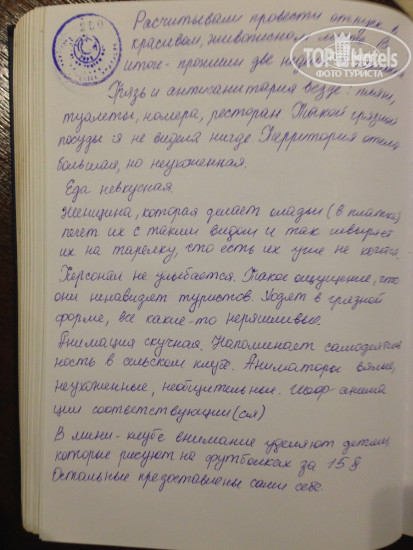 Расчитывали провести отпуск в
красивом, живописном месте. В
итоге - прожили две
Грязь и антисанитария везде: пляж,
туалеты, номера, ресторан. Такой грязной
посуды я не видела нигде. Территория отеля
большая, но неухоженная.
Еда невкусная.
Женщина, которая делает оладьи (в платке)
печет их с таким видом и так швыряет
их на тарелку, что есть их уже не хочется.
Персонал не улыбается. Такое ощущение, что
они ненавидят туристов. Ходят в грязной
форме, все какие-то неряшливые.
Анимация скучная. Напоминает самодеятель
ность в сельском клубе. Аниматоры вялые,
неухоженные, необщительные. Шеф-анима
ции соответствующий(ся)
В мини-клубе внимание уделяют детям,
которые рисуют на футболках за 15$
Остальные предоставлены сами себе.
250
TOPHotels
ФОТО ТУРИСТА